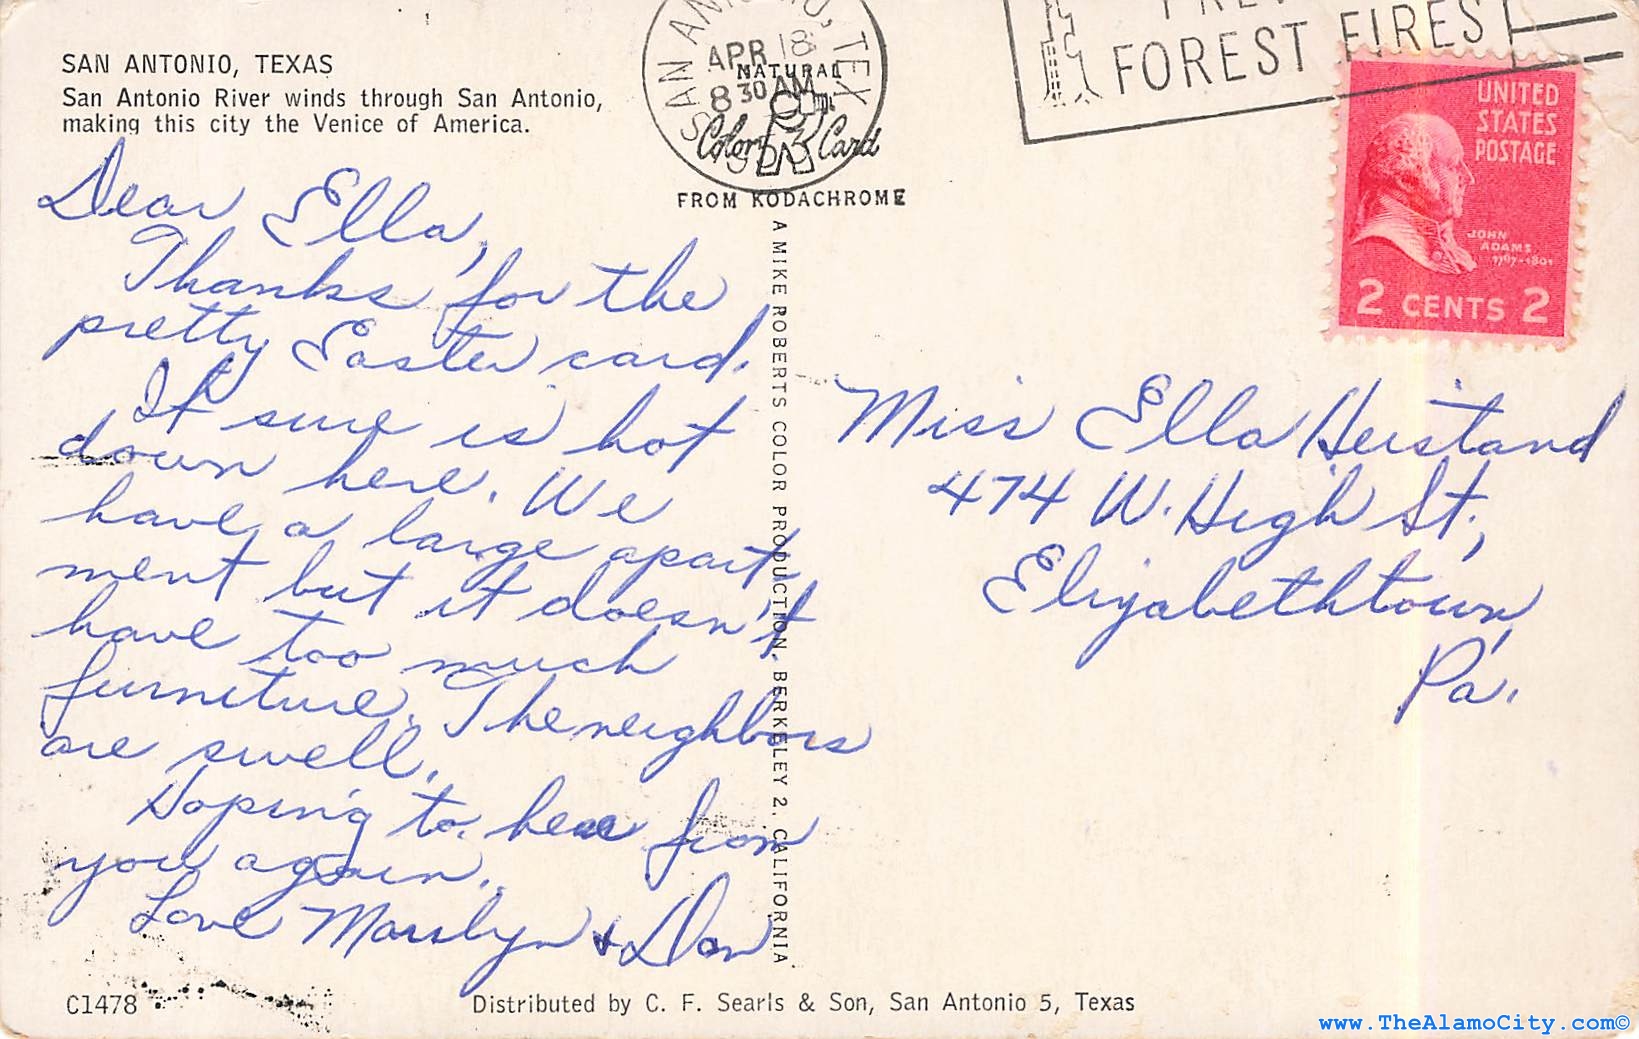 SAN ANTONIO, TEXAS
San Antonio River winds through San Antonio,
making this city the Venice of America.
Dear Ella,
Thanks for the
pretty Easter card.
It sure is hot
down here. We
have a large apart-
ment but it doesn't
have too much
furniture. The neighbors
are swell.
Hoping to hear from
you again.
Love Marilyn & Don
C1478
Distributed by C. F. Searls & Son, San Antonio 5, Texas
SAN ANTONIO, TEX
APR 18
8 30 AM
NATURAL
Color Card
FROM KODACHROME
A MIKE ROBERTS COLOR PRODUCTION, BERKELEY 2, CALIFORNIA
FOREST FIRES
UNITED
STATES
POSTAGE
JOHN
ADAMS
1797-1801
2 CENTS 2
Miss Ella Heistand
474 W. High St.,
Elizabethtown,
Pa.
www.TheAlamoCity.com©